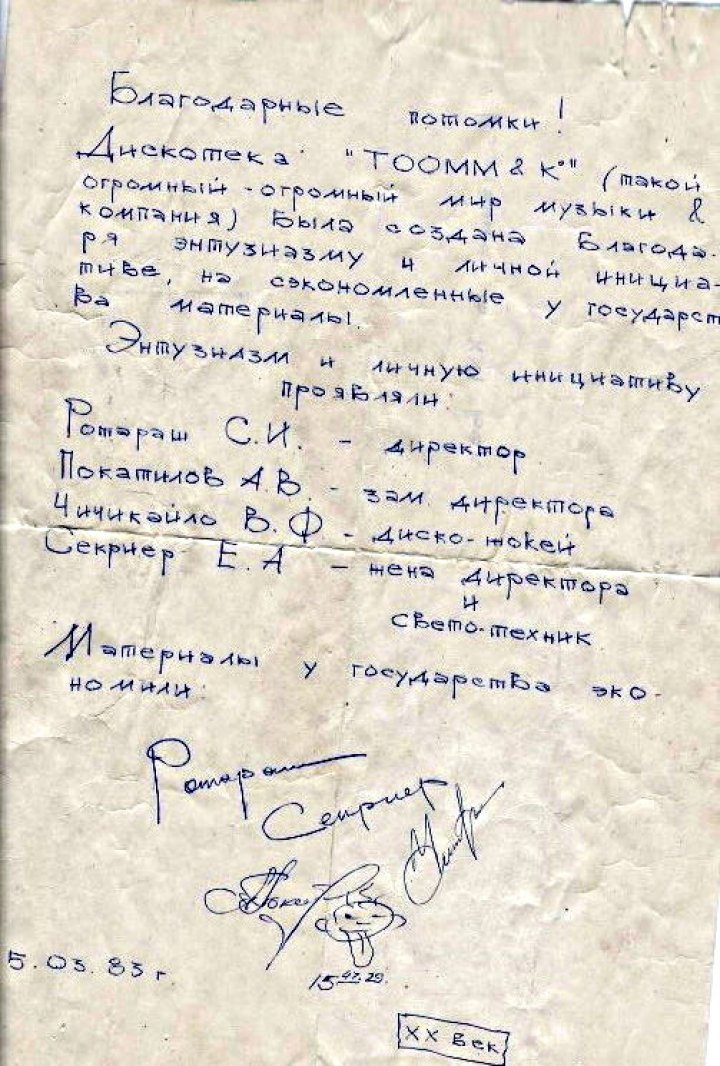 Благодарные потомки!
Дискотека "ТООММ & К°" (такой
огромный-огромный мир музыки &
компания) была создана благода-
ря энтузиазму и личной инициа-
тиве, на сэкономленные у государст
ва материалы.
Энтузиазм и личную инициативу
проявляли:
Ротараш С.И. - директор
Покатилов А.В. - зам. директора
Чичикайло В.Ф. - диско-жокей
Секриер Е.А - жена директора
и
свето-техник
Материалы у государства эко-
номили:
Ротараш
Секриер
5.03.83 г.
XX век